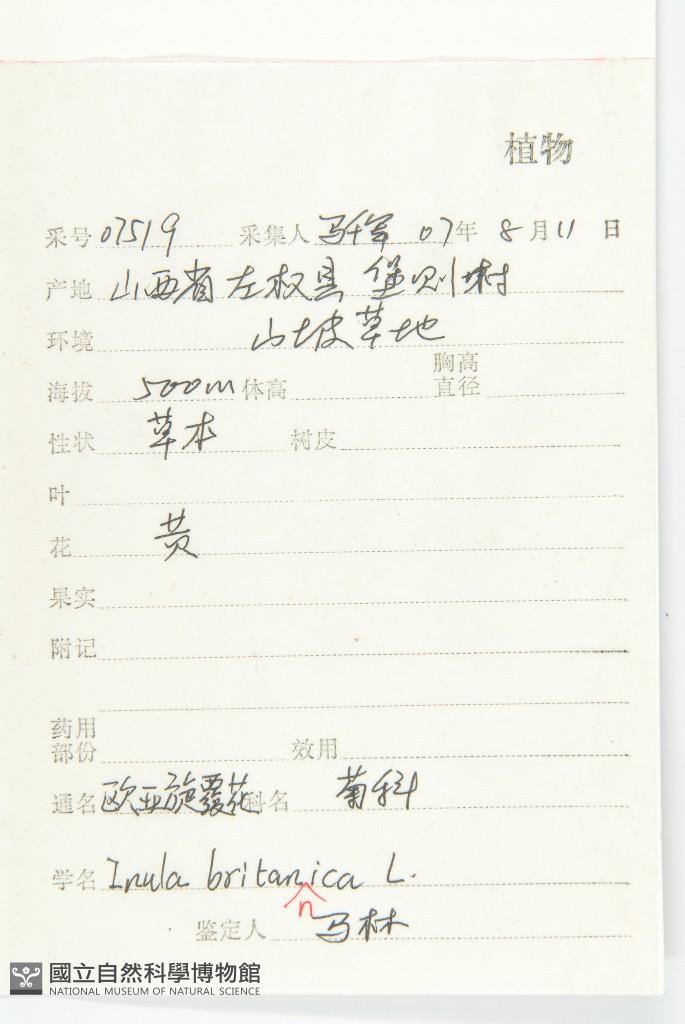 植物
采号 07519 采集人 马千军 07年 8月11日
产地 山西省左权县堡则村
环境 山坡草地
海拔 500m 体高 胸高直径
性状 草本 树皮
叶
花 黄
果实
附记
药用部份 效用
通名 欧亚旋覆花 科名 菊科
学名 Inula britanica L.
n
鉴定人 马林
國立自然科學博物館
NATIONAL MUSEUM OF NATURAL SCIENCE